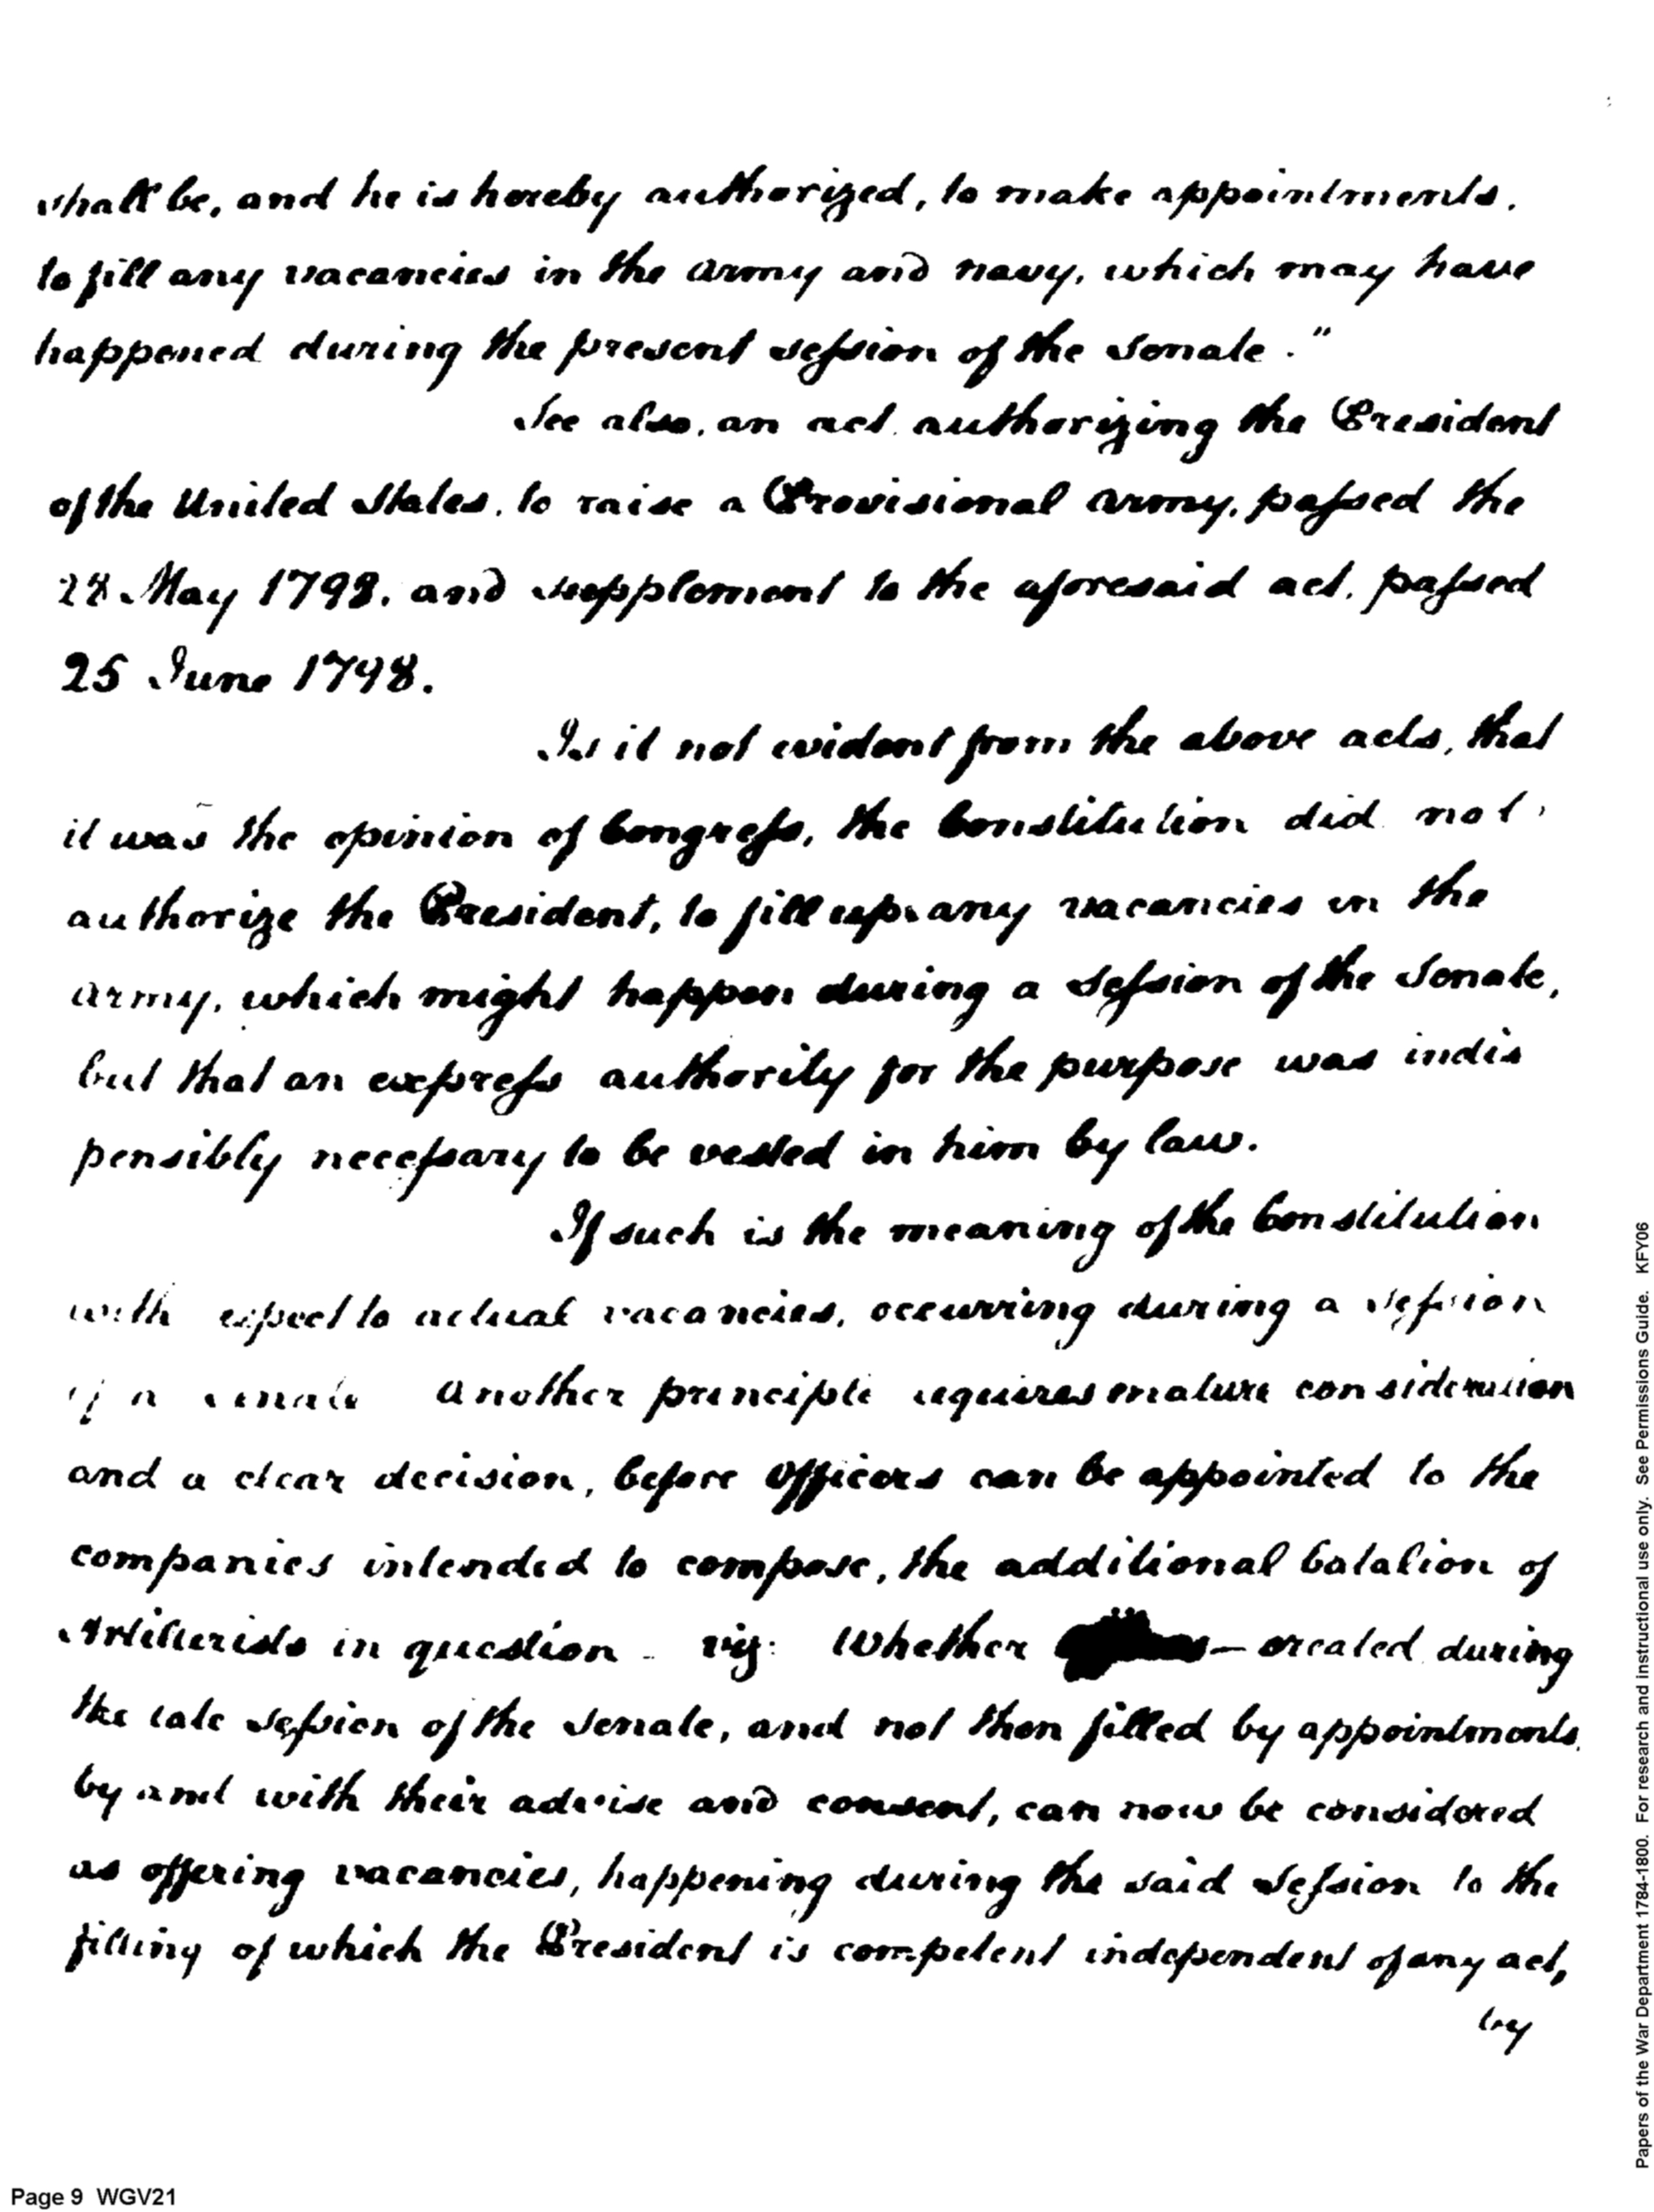 shall be, and he is hereby authorized, to make appointments.
to fill any vacancies in the army and navy, which may have
happened during the present session of the Senate."
See also, an act authorizing the President
of the United States, to raise a Provisional army, passed the
28 May 1798, and supplement to the aforesaid act, passed
25 June 1798.
Is it not evident from the above acts, that
it was the opinion of Congress, the Constitution did not
authorize the President, to fill up any vacancies in the
army, which might happen during a Session of the Senate,
but that an express authority for the purpose was indis
pensibly necessary to be vested in him by law.
If such is the meaning of the Constitution
with respect to actual vacancies, occurring during a Session
of a Senate another principle requires mature consideration
and a clear decision, before Officers can be appointed to the
companies intended to compose, the additional batalion of
Artillerists in question - viz: Whether - created during
the late session of the Senate, and not then filled by appointments
by and with their advise and consent, can now be considered
as offering vacancies, happening during the said Session to the
filling of which the President is competent independent of any act,
by
Page 9 WGV21
Papers of the War Department 1784-1800. For research and instructional use only. See Permissions Guide. KFY06